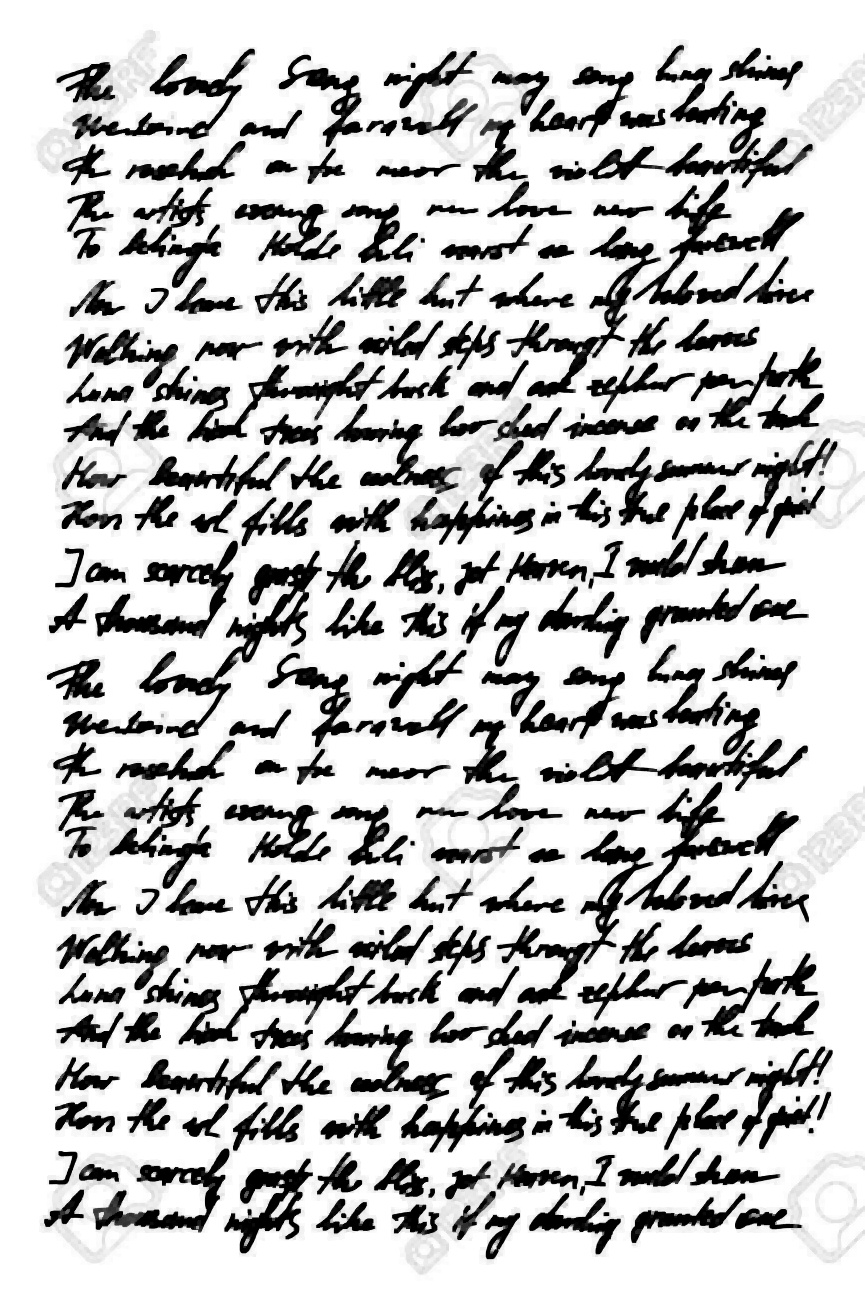 The lovely Song night may song luna shines
and farewell my heart was beating
on the the violet beautiful
The artists evening song new love new life
To Belinda Holde Lili so long farewell
Now I leave this little hut where my beloved lives
Walking now with veiled steps through the leaves
Luna shines through bush and oak zephyr path
And the birch trees bowing low shed incense on the track
How beautiful the coolness of this lovely summer night!
How the soul fills with happiness in this true place of quiet!
I can scarcely grasp the bliss, yet Heaven, I would shun
A thousand nights like this if my darling granted one
The lovely Song night may song luna shines
and farewell my heart was beating
on the the violet beautiful
The artists evening song new love new life
To Belinda Holde Lili so long farewell
Now I leave this little hut where my beloved lives
Walking now with veiled steps through the leaves
Luna shines through bush and oak zephyr path
And the birch trees bowing low shed incense on the track
How beautiful the coolness of this lovely summer night!
How the soul fills with happiness in this true place of quiet!
I can scarcely grasp the bliss, yet Heaven, I would shun
A thousand nights like this if my darling granted one